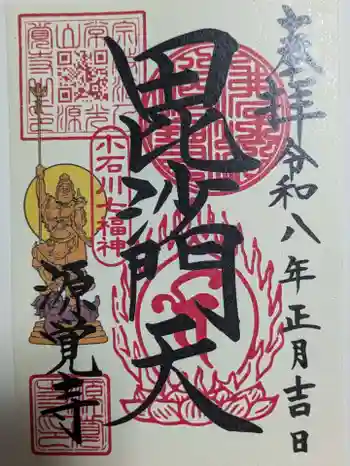 奉拝
令和八年正月吉日
毘沙門天
小石川七福神
源覚寺